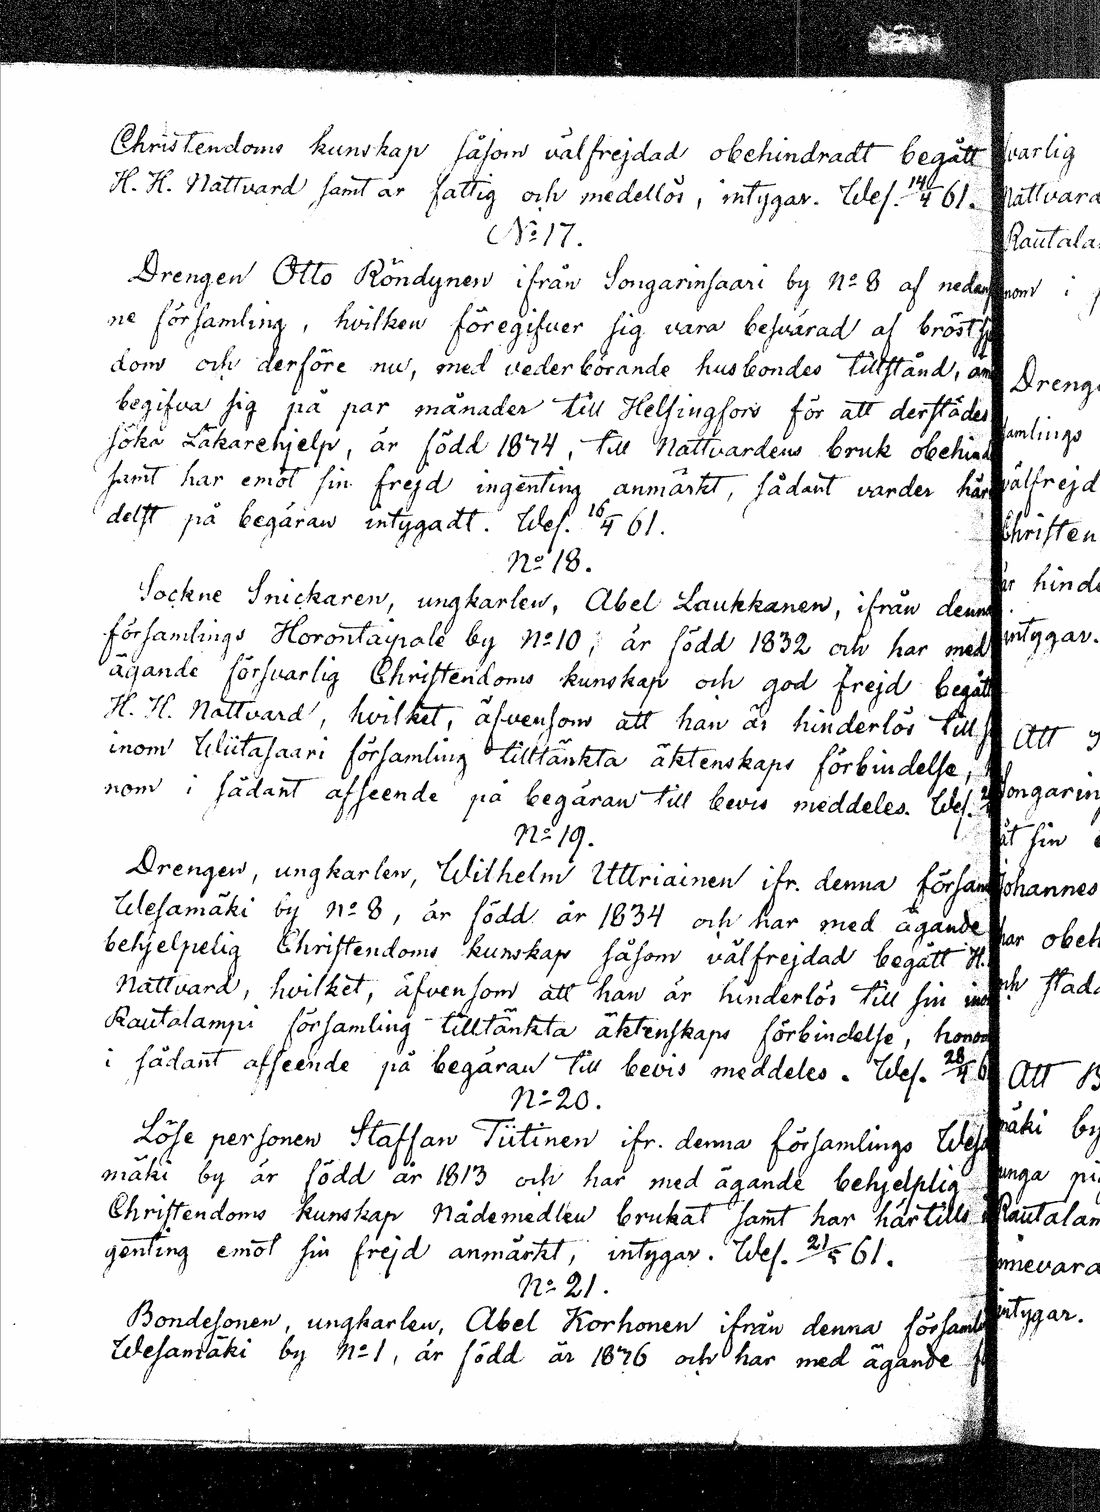 Christendoms kunskap såsom välfrejdad obehindradt begått
H. H. Nattvard samt är fattig och medellös, intygar. Wes. 14/4 61.
No 17.
Drengen Otto Röndynen ifrån Songarinsaari by No 8 af nedan
ne församling, hvilken föregifver sig vara besvärad af bröst
dom och derföre nu, med vederbörande husbondes tillstånd,
begifva sig på par månader till Helsingfors för att derstädes
söka Läkarehjelp, är född 1874, till Nattvardens bruk obehind
samt har emot sin frejd ingenting anmärkt, sådant varder här
delst på begäran intygadt. Wes. 16/4 61.
No 18.
Sockne Snickaren, ungkarlen, Abel Laukkanen, ifrån denna
församlings Horontaipale by No 10, är född 1832 och har med
ägande försvarlig Christendoms kunskap och god frejd begått
H. H. Nattvard, hvilket, äfvensom att han är hinderlös till
inom Wiitasaari församling tilltänkta äktenskaps förbindelse,
nom i sådant afseende på begäran till bevis meddeles. Wes.
No 19.
Drengen, ungkarlen, Wilhelm Uttriainen ifr. denna försam
Wesamäki by No 8, är född år 1834 och har med ägande
behjelpelig Christendoms kunskap såsom välfrejdad begått H.
Nattvard, hvilket, äfvensom att han är hinderlös till sin inom
Rautalampi församling tilltänkta äktenskaps förbindelse, honom
i sådant afseende på begäran till bevis meddeles. Wes. 28/4 6
No 20.
Löse personen Staffan Tiitinen ifr. denna församlings Wesa
mäki by är född år 1813 och har med ägande behjelplig
Christendoms kunskap Nådemedlen brukat samt har härtills
genting emot sin frejd anmärkt, intygar. Wes. 21/5 61.
No 21.
Bondesonen, ungkarlen, Abel Korhonen ifrån denna församl
Wesamäki by No 1, är född år 1876 och har med ägande
varlig
Nattvard
Rautala
nom i
Dreng
samlings
välfrejd
Christen
är hind
intygar.
Att
Songarin
åt sin
Johannes
har obeh
och stad
Att B
mäki by
unga pi
Rautalam
nnevara
intygar.